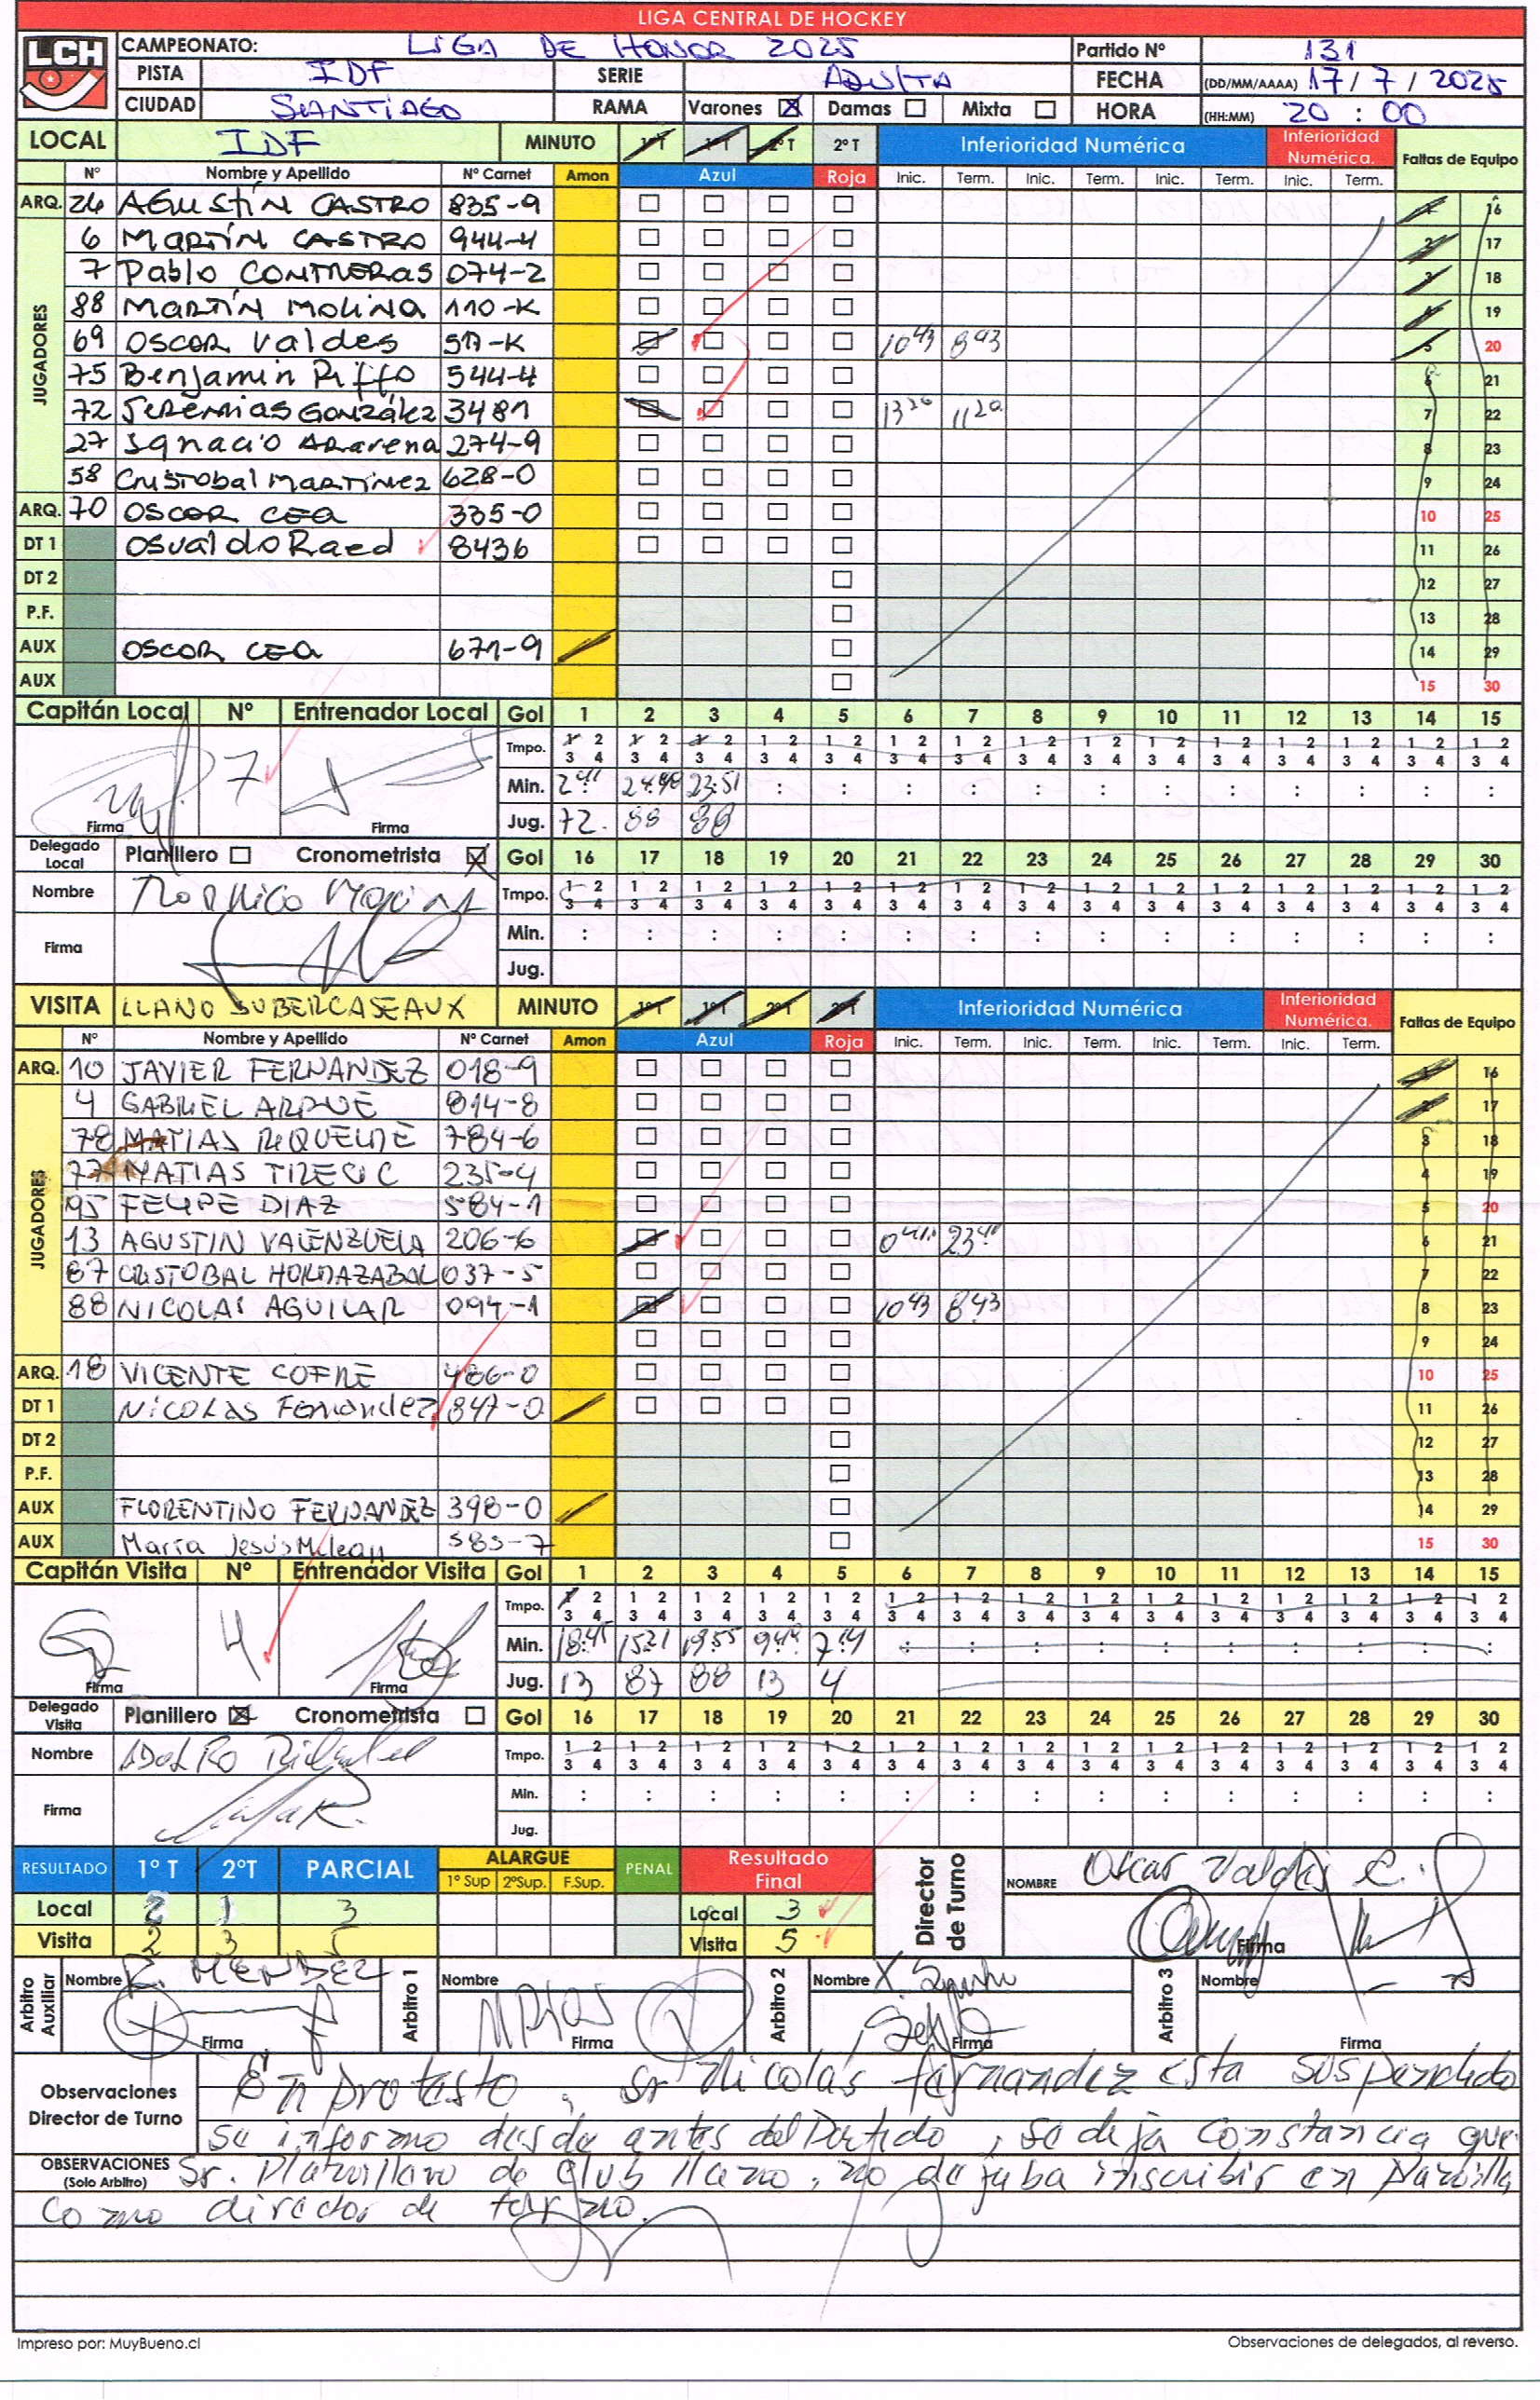 LIGA CENTRAL DE HOCKEY
LCH
CAMPEONATO: LIGA DE HONOR 2025 Partido Nº 131
PISTA IDF SERIE ADULTA FECHA (DD/MM/AAAA) 17 / 7 / 2025
CIUDAD SANTIAGO RAMA Varones Damas Mixta HORA (HH:MM) 20 : 00
LOCAL IDF MINUTO 1ºT 1ºT 2ºT 2ºT Inferioridad Numérica Inferioridad Numérica. Faltas de Equipo
Nº Nombre y Apellido Nº Carnet Amon Azul Roja Inic. Term. Inic. Term. Inic. Term. Inic. Term.
JUGADORES
ARQ. 26 AGUSTÍN CASTRO 835-9 1 16
6 MARTÍN CASTRO 944-4 2 17
7 Pablo CONTRERAS 074-2 3 18
88 MARTÍN MOLINA 110-K 4 19
69 OSCAR Valdes 517-K 10 43 8 43 5 20
75 Benjamin Piffo 544-4 6 21
72 Jeremias González 3481 13 20 11 20 7 22
27 Ignacio Aravena 274-9 8 23
58 Cristobal MARTINEZ 628-0 9 24
ARQ. 70 OSCAR CEA 335-0 10 25
DT 1 Osvaldo Raed 8436 11 26
DT 2 12 27
P.F. 13 28
AUX OSCAR CEA 671-9 14 29
AUX 15 30
Capitán Local Nº Entrenador Local Gol 1 2 3 4 5 6 7 8 9 10 11 12 13 14 15
Tmpo. 1 2 1 2 1 2 1 2 1 2 1 2 1 2 1 2 1 2 1 2 1 2 1 2 1 2 1 2 1 2
3 4 3 4 3 4 3 4 3 4 3 4 3 4 3 4 3 4 3 4 3 4 3 4 3 4 3 4 3 4
7 Min. 2 41 24:40 23:51 : : : : : : : : : : : :
Firma Firma Jug. 72. 88 88
Delegado Local Planillero Cronometrista Gol 16 17 18 19 20 21 22 23 24 25 26 27 28 29 30
Nombre Tmpo. 1 2 1 2 1 2 1 2 1 2 1 2 1 2 1 2 1 2 1 2 1 2 1 2 1 2 1 2 1 2
3 4 3 4 3 4 3 4 3 4 3 4 3 4 3 4 3 4 3 4 3 4 3 4 3 4 3 4 3 4
Firma Min. : : : : : : : : : : : : : : :
Jug.
VISITA LLANO SUBERCASEAUX MINUTO 1ºT 1ºT 2ºT 2ºT Inferioridad Numérica Inferioridad Numérica. Faltas de Equipo
Nº Nombre y Apellido Nº Carnet Amon Azul Roja Inic. Term. Inic. Term. Inic. Term. Inic. Term.
JUGADORES
ARQ. 10 JAVIER FERNANDEZ 018-9 1 16
4 GABRIEL ARQUE 814-8 2 17
78 MATIAS RIQUELME 784-6 3 18
77 MATIAS TIRESIC 235-4 4 19
95 FELIPE DIAZ 584-1 5 20
13 AGUSTIN VALENZUELA 206-6 0 41 23 41 6 21
87 CRISTOBAL HORMAZABAL 037-5 7 22
88 NICOLAS AGUILAR 094-1 10 43 8 43 8 23
9 24
ARQ. 18 VICENTE COFRE 486-0 10 25
DT 1 Nicolas Fernandez 847-0 11 26
DT 2 12 27
P.F. 13 28
AUX FLORENTINO FERNANDEZ 398-0 14 29
AUX María Jesús Mclean 585-7 15 30
Capitán Visita Nº Entrenador Visita Gol 1 2 3 4 5 6 7 8 9 10 11 12 13 14 15
Tmpo. 1 2 1 2 1 2 1 2 1 2 1 2 1 2 1 2 1 2 1 2 1 2 1 2 1 2 1 2 1 2
3 4 3 4 3 4 3 4 3 4 3 4 3 4 3 4 3 4 3 4 3 4 3 4 3 4 3 4 3 4
4 Min. 18:45 15:21 19:55 9:49 7:14 : : : : : : : : : :
Firma Firma Jug. 13 87 88 13 4
Delegado Visita Planillero Cronometrista Gol 16 17 18 19 20 21 22 23 24 25 26 27 28 29 30
Nombre Tmpo. 1 2 1 2 1 2 1 2 1 2 1 2 1 2 1 2 1 2 1 2 1 2 1 2 1 2 1 2 1 2
3 4 3 4 3 4 3 4 3 4 3 4 3 4 3 4 3 4 3 4 3 4 3 4 3 4 3 4 3 4
Firma Min. : : : : : : : : : : : : : : :
Jug.
RESULTADO 1º T 2ºT PARCIAL ALARGUE 1º Sup 2ºSup. F.Sup. PENAL Resultado Final Director de Turno NOMBRE Oscar Valdés C.
Local 2 1 3 Local 3
Visita 2 3 5 Visita 5 Firma
Arbitro Auxiliar Nombre R. MENDEZ Arbitro 1 Nombre Arbitro 2 Nombre Arbitro 3 Nombre
Firma Firma Firma Firma
Observaciones Director de Turno En protesto, sr Nicolás fernandez esta suspendido
se informo desde antes del Partido, se deja constancia que
OBSERVACIONES (Solo Arbitro) Sr. Planillero de club llano, no dejaba inscribir en Planilla
como director de turno.
Impreso por: MuyBueno.cl Observaciones de delegados, al reverso.